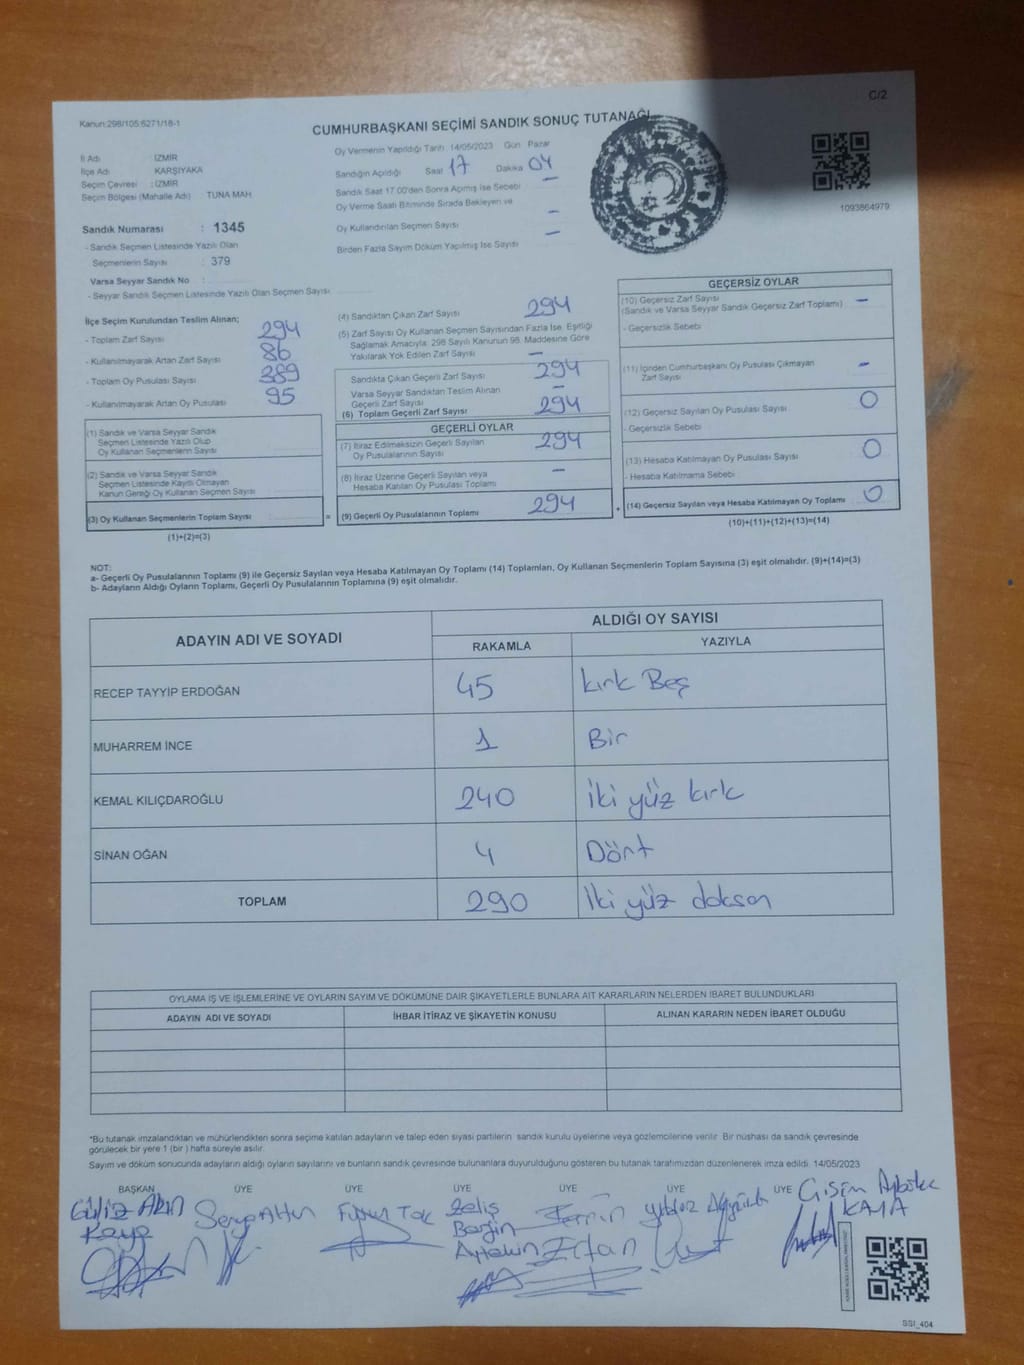 C/2
Kanun:298/105:6271/18-1
CUMHURBAŞKANI SEÇİMİ SANDIK SONUÇ TUTANAĞI
İl Adı : İZMİR
İlçe Adı KARŞIYAKA
Seçim Çevresi : İZMİR
Seçim Bölgesi (Mahalle Adı) TUNA MAH
Sandık Numarası : 1345
- Sandık Seçmen Listesinde Yazılı Olan
Seçmenlerin Sayısı : 379
Varsa Seyyar Sandık No :
- Seyyar Sandık Seçmen Listesinde Yazılı Olan Seçmen Sayısı
Oy Vermenin Yapıldığı Tarih 14/05/2023 Gün Pazar
Sandığın Açıldığı Saat 17 Dakika 04
Sandık Saat 17:00'den Sonra Açılmış İse Sebebi —
Oy Verme Saati Bitiminde Sırada Bekleyen ve
Oy Kullandırılan Seçmen Sayısı —
Birden Fazla Sayım Döküm Yapılmış İse Sayısı —
1093864979
İlçe Seçim Kurulundan Teslim Alınan;
- Toplam Zarf Sayısı 294
- Kullanılmayarak Artan Zarf Sayısı 86
- Toplam Oy Pusulası Sayısı 389
- Kullanılmayarak Artan Oy Pusulası 95
(1) Sandık ve Varsa Seyyar Sandık
Seçmen Listesinde Yazılı Olup
Oy Kullanan Seçmenlerin Sayısı
(2) Sandık ve Varsa Seyyar Sandık
Seçmen Listesinde Kayıtlı Olmayan
Kanun Gereği Oy Kullanan Seçmen Sayısı
(3) Oy Kullanan Seçmenlerin Toplam Sayısı =
(1)+(2)=(3)
(4) Sandıktan Çıkan Zarf Sayısı 294
(5) Zarf Sayısı Oy Kullanan Seçmen Sayısından Fazla İse, Eşitliği
Sağlamak Amacıyla; 298 Sayılı Kanunun 98. Maddesine Göre
Yakılarak Yok Edilen Zarf Sayısı —
Sandıkta Çıkan Geçerli Zarf Sayısı 294
Varsa Seyyar Sandıktan Teslim Alınan
Geçerli Zarf Sayısı —
(6) Toplam Geçerli Zarf Sayısı 294
GEÇERLİ OYLAR
(7) İtiraz Edilmeksizin Geçerli Sayılan
Oy Pusulalarının Sayısı 294
(8) İtiraz Üzerine Geçerli Sayılan veya
Hesaba Katılan Oy Pusulası Toplamı —
(9) Geçerli Oy Pusulalarının Toplamı 294 +
GEÇERSİZ OYLAR
(10) Geçersiz Zarf Sayısı
(Sandık ve Varsa Seyyar Sandık Geçersiz Zarf Toplamı) —
- Geçersizlik Sebebi
(11) İçinden Cumhurbaşkanı Oy Pusulası Çıkmayan
Zarf Sayısı —
(12) Geçersiz Sayılan Oy Pusulası Sayısı 0
- Geçersizlik Sebebi
(13) Hesaba Katılmayan Oy Pusulası Sayısı 0
- Hesaba Katılmama Sebebi
(14) Geçersiz Sayılan veya Hesaba Katılmayan Oy Toplamı 0
(10)+(11)+(12)+(13)=(14)
NOT:
a- Geçerli Oy Pusulalarının Toplamı (9) ile Geçersiz Sayılan veya Hesaba Katılmayan Oy Toplamı (14) Toplamları, Oy Kullanan Seçmenlerin Toplam Sayısına (3) eşit olmalıdır. (9)+(14)=(3)
b- Adayların Aldığı Oyların Toplamı, Geçerli Oy Pusulalarının Toplamına (9) eşit olmalıdır.
ADAYIN ADI VE SOYADI ALDIĞI OY SAYISI
RAKAMLA YAZIYLA
RECEP TAYYİP ERDOĞAN 45 kırk Beş
MUHARREM İNCE 1 Bir
KEMAL KILIÇDAROĞLU 240 iki yüz kırk
SİNAN OĞAN 4 Dört
TOPLAM 290 iki yüz doksan
OYLAMA İŞ VE İŞLEMLERİNE VE OYLARIN SAYIM VE DÖKÜMÜNE DAİR ŞİKAYETLERLE BUNLARA AİT KARARLARIN NELERDEN İBARET BULUNDUKLARI
ADAYIN ADI VE SOYADI İHBAR İTİRAZ VE ŞİKAYETİN KONUSU ALINAN KARARIN NEDEN İBARET OLDUĞU
*Bu tutanak imzalandıktan ve mühürlendikten sonra seçime katılan adayların ve talep eden siyasi partilerin sandık kurulu üyelerine veya gözlemcilerine verilir. Bir nüshası da sandık çevresinde
görülecek bir yere 1 (bir) hafta süreyle asılır.
Sayım ve döküm sonucunda adayların aldığı oyların sayılarını ve bunların sandık çevresinde bulunanlara duyurulduğunu gösteren bu tutanak tarafımızdan düzenlenerek imza edildi. 14/05/2023
BAŞKAN ÜYE ÜYE ÜYE ÜYE ÜYE ÜYE
Güliz Akın
Kaya
Aytekin
KAYA
SSI_404